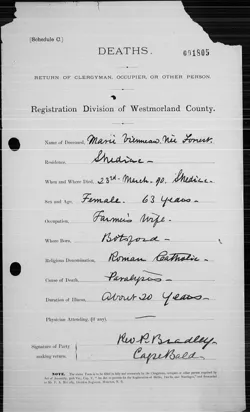 [Schedule C.]
DEATHS.
001805
RETURN OF CLERGYMAN, OCCUPIER, OR OTHER PERSON.
Registration Division of Westmorland County.
Name of Deceased, Marie Vienneau Née
Residence, Shediac
When and Where Died, 23rd March 90. Shediac
Sex and Age, Female. 63 years
Occupation, Farmer's Wife
Where Born, Botsford
Religious Denomination, Roman Catholic
Cause of Death, Paralysis
Duration of Illness, About 20 Years
Physician Attending, (if any)
Signature of Party making return, Rev. P. Bradley
Cape Bald
NOTE.